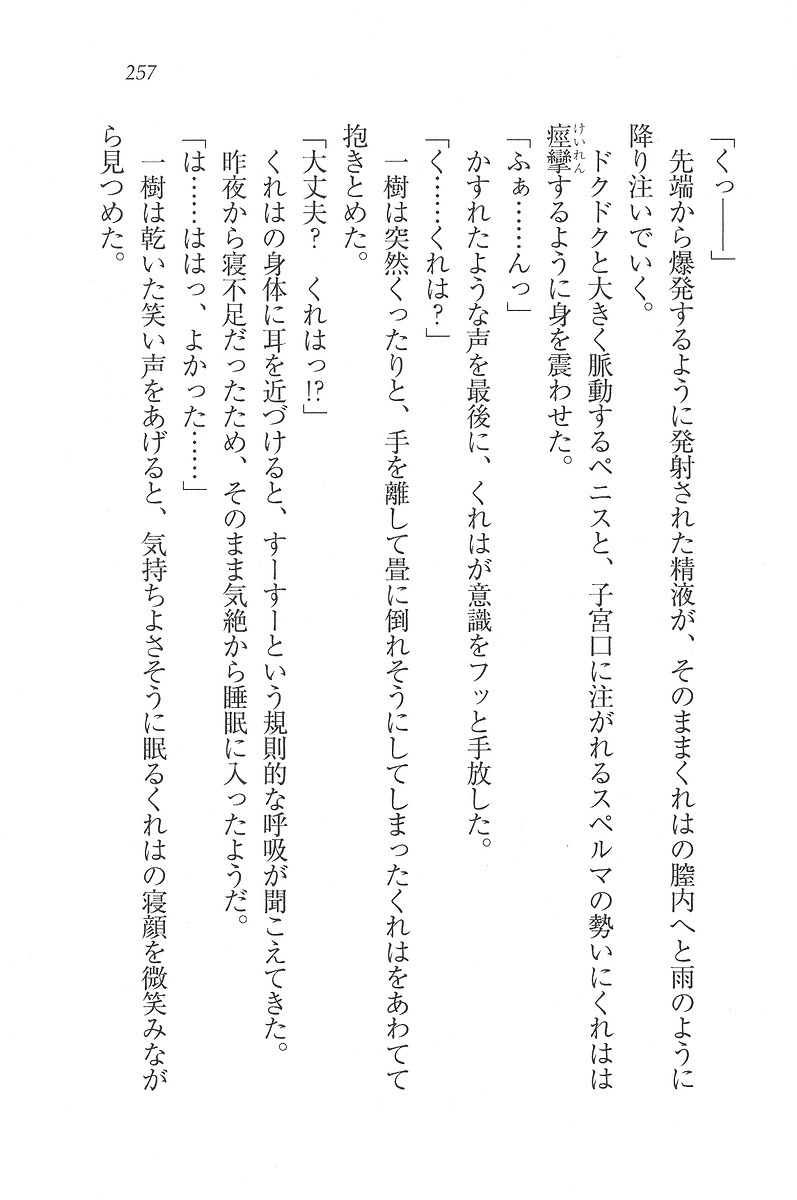 257
「くっ――」
先端から爆発するように発射された精液が、そのままくれはの膣内へと雨のように
降り注いでいく。
ドクドクと大きく脈動するペニスと、子宮口に注がれるスペルマの勢いにくれはは
痙攣するように身を震わせた。
けいれん
「ふぁ……んっ」
かすれたような声を最後に、くれはが意識をフッと手放した。
「く……くれは?」
一樹は突然くったりと、手を離して畳に倒れそうにしてしまったくれはをあわてて
抱きとめた。
「大丈夫? くれはっ!?」
くれはの身体に耳を近づけると、すーすーという規則的な呼吸が聞こえてきた。
昨夜から寝不足だったため、そのまま気絶から睡眠に入ったようだ。
「は……ははっ、よかった……」
一樹は乾いた笑い声をあげると、気持ちよさそうに眠るくれはの寝顔を微笑みなが
ら見つめた。